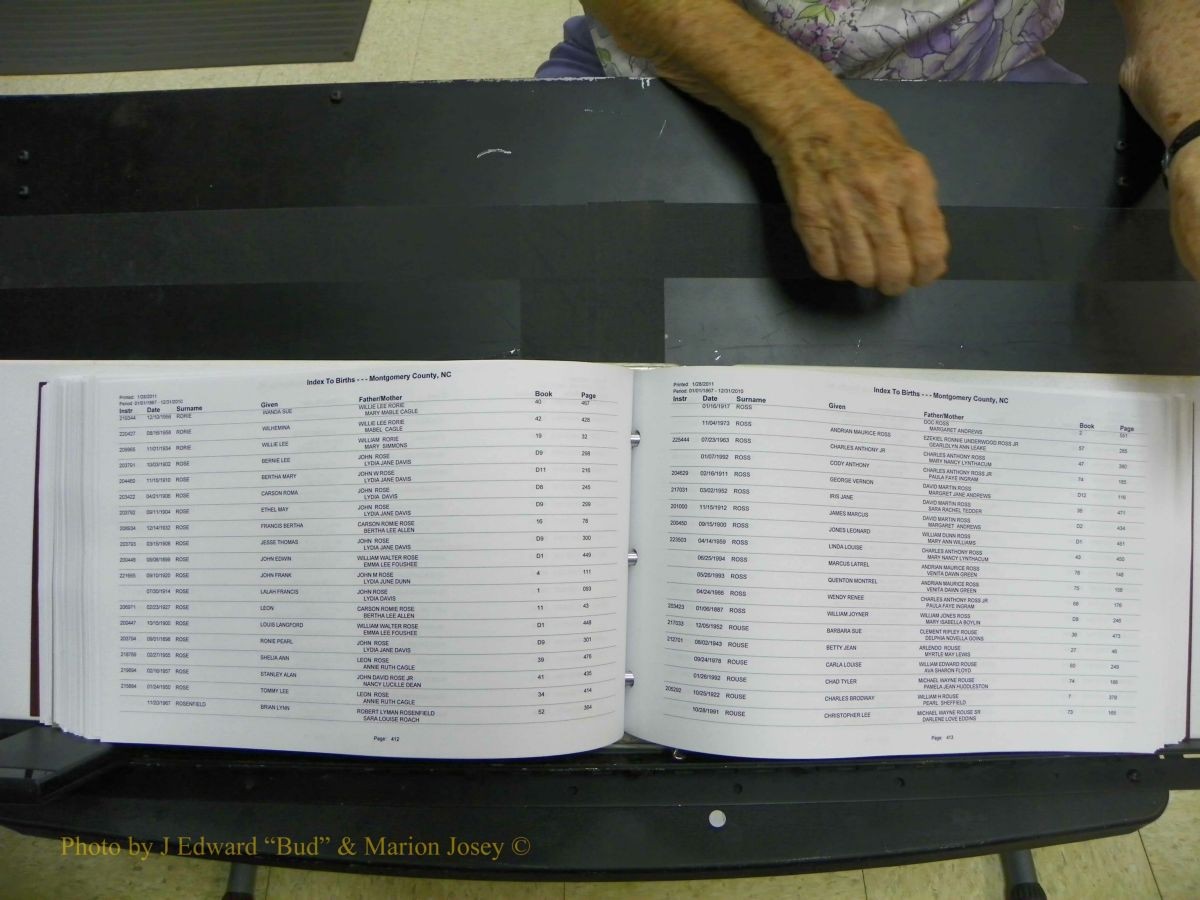 Index To Births - - - Montgomery County, NC
Printed: 1/28/2011
Period: 01/01/1867 - 12/31/2010
Instr Date Surname Given Father/Mother Book Page
RORIE WANDA SUE WILLIE LEE RORIE 40 467
MARY MABLE CAGLE
220427 RORIE WILHEMINA WILLIE LEE RORIE 42 428
MABEL CAGLE
11/01/1934 RORIE WILLIE LEE WILLIAM RORIE 19 32
MARY SIMMONS
203791 10/03/1902 ROSE BERNIE LEE JOHN ROSE D9 298
LYDIA JANE DAVIS
204460 11/15/1910 ROSE BERTHA MARY JOHN W ROSE D11 216
LYDIA JANE DAVIS
203422 ROSE CARSON ROMA JOHN ROSE D8 245
LYDIA DAVIS
203792 09/11/1904 ROSE ETHEL MAY JOHN ROSE D9 299
LYDIA JANE DAVIS
12/14/1932 ROSE FRANCIS BERTHA CARSON ROMIE ROSE 16 78
BERTHA LEE ALLEN
203793 03/15/1908 ROSE JESSE THOMAS JOHN ROSE D9 300
LYDIA JANE DAVIS
200446 ROSE JOHN EDWIN WILLIAM WALTER ROSE D1 449
EMMA LEE FOUSHEE
09/10/1920 ROSE JOHN FRANK JOHN M ROSE 4 111
LYDIA JUNE DUNN
07/30/1914 ROSE LALAH FRANCIS JOHN ROSE 1 093
LYDIA DAVIS
206971 02/23/1927 ROSE LEON CARSON ROMIE ROSE 11 43
BERTHA LEE ALLEN
200447 10/15/1900 ROSE LOUIS LANGFORD WILLIAM WALTER ROSE D1 448
EMMA LEE FOUSHEE
203794 09/01/1898 ROSE RONIE PEARL JOHN ROSE D9 301
LYDIA JANE DAVIS
02/27/1955 ROSE SHELIA ANN LEON ROSE 39 476
ANNIE RUTH CAGLE
02/16/1957 ROSE STANLEY ALAN JOHN DAVID ROSE JR 41 435
NANCY LUCILLE DEAN
01/24/1950 ROSE TOMMY LEE LEON ROSE 34 414
ANNIE RUTH CAGLE
11/20/1967 ROSENFIELD BRIAN LYNN ROBERT LYMAN ROSENFIELD 52 364
SARA LOUISE ROACH
Page: 412
Index To Births - - - Montgomery County, NC
Printed: 1/28/2011
Period: 01/01/1867 - 12/31/2010
Instr Date Surname Given Father/Mother Book Page
01/16/1917 ROSS DOC ROSS 2 551
MARGARET ANDREWS
11/04/1973 ROSS ANDRIAN MAURICE ROSS EZEKIEL RONNIE UNDERWOOD ROSS JR 57 265
GEARLDLYN ANN LEAKE
225444 07/23/1963 ROSS CHARLES ANTHONY JR CHARLES ANTHONY ROSS 47 380
MARY NANCY LYNTHACUM
01/07/1992 ROSS CODY ANTHONY CHARLES ANTHONY ROSS JR 74 165
PAULA FAYE INGRAM
204629 02/16/1911 ROSS GEORGE VERNON DAVID MARTIN ROSS D12 116
MARGRET JANE ANDREWS
217031 03/02/1952 ROSS IRIS JANE DAVID MARTIN ROSS 36 471
SARA RACHEL TEDDER
201000 11/15/1912 ROSS JAMES MARCUS DAVID MARTIN ROSS D2 434
MARGARET ANDREWS
200450 09/15/1900 ROSS JONES LEONARD WILLIAM DUNN ROSS D1 451
MARY ANN WILLIAMS
223503 04/14/1959 ROSS LINDA LOUISE CHARLES ANTHONY ROSS 43 450
MARY NANCY LYNTHACUM
06/25/1994 ROSS MARCUS LATREL ANDRIAN MAURICE ROSS 76 148
VENITA DAWN GREEN
05/26/1993 ROSS QUENTON MONTREL ANDRIAN MAURICE ROSS 75
VENITA DAWN GREEN
04/24/1986 ROSS WENDY RENEE CHARLES ANTHONY ROSS JR 68 176
PAULA FAYE INGRAM
203423 01/06/1887 ROSS WILLIAM JOYNER WILLIAM JONES ROSS D8 246
MARY ISABELLA BOYLIN
217033 12/05/1952 ROUSE BARBARA SUE CLEMENT RIPLEY ROUSE 36 473
DELPHIA NOVELLA GOINS
212701 08/02/1943 ROUSE BETTY JEAN ARLENDO ROUSE 27 46
MYRTLE MAY LEWIS
09/24/1978 ROUSE CARLA LOUISE WILLIAM EDWARD ROUSE 60 249
AVA SHARON FLOYD
01/26/1992 ROUSE CHAD TYLER MICHAEL WAYNE ROUSE 74 166
PAMELA JEAN HUDDLESTON
205292 10/25/1922 ROUSE CHARLES BRODWAY WILLIAM H ROUSE 7 378
PEARL SHEFFIELD
10/28/1991 ROUSE CHRISTOPHER LEE MICHAEL WAYNE ROUSE SR 73 165
DARLENE LOVE EDDINS
Page: 413
Photo by J Edward “Bud” & Marion Josey ©